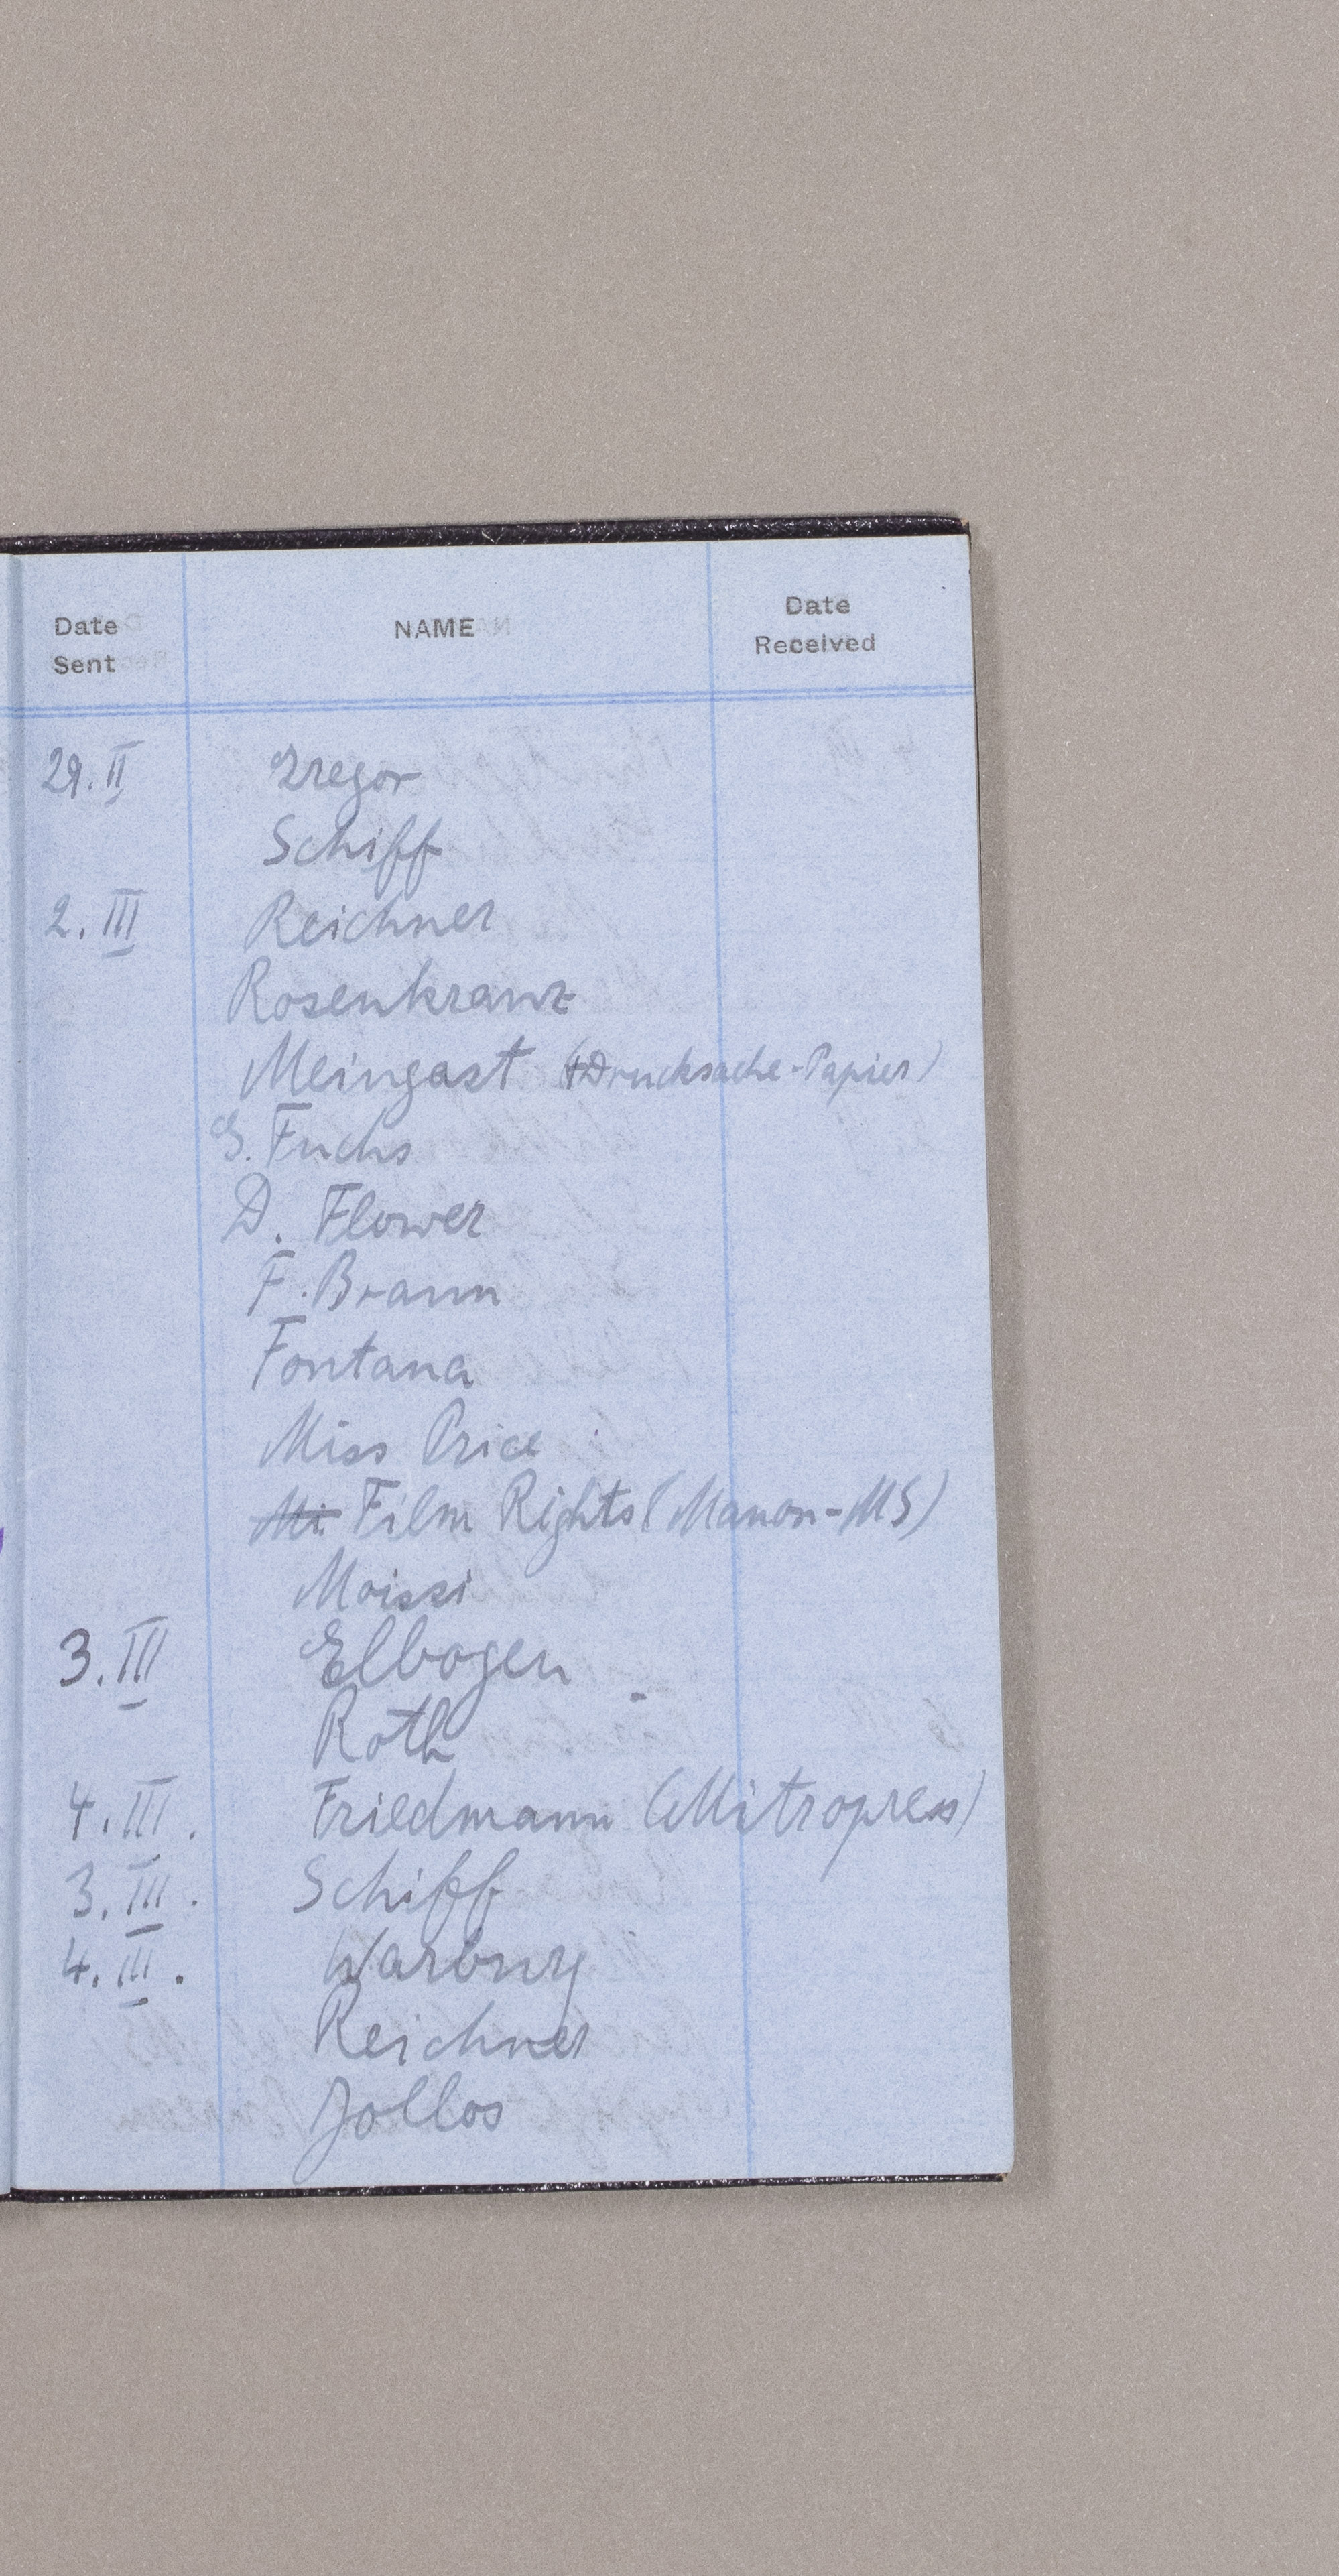 Date Sent NAME Date Received
29. II Gregor
Schiff
2. III Reichner
Rosenkranz
Meingast (+Drucksache-Papier)
E. Fuchs
D. Flower
F. Braun
Fontana
Miss Price
Mi Film Rights (Manon-MS)
Moissi
3. III Elbogen
Roth
4. III. Friedmann (Mitropress)
3. III. Schiff
4. III. Warburg
Reichner
Jollos